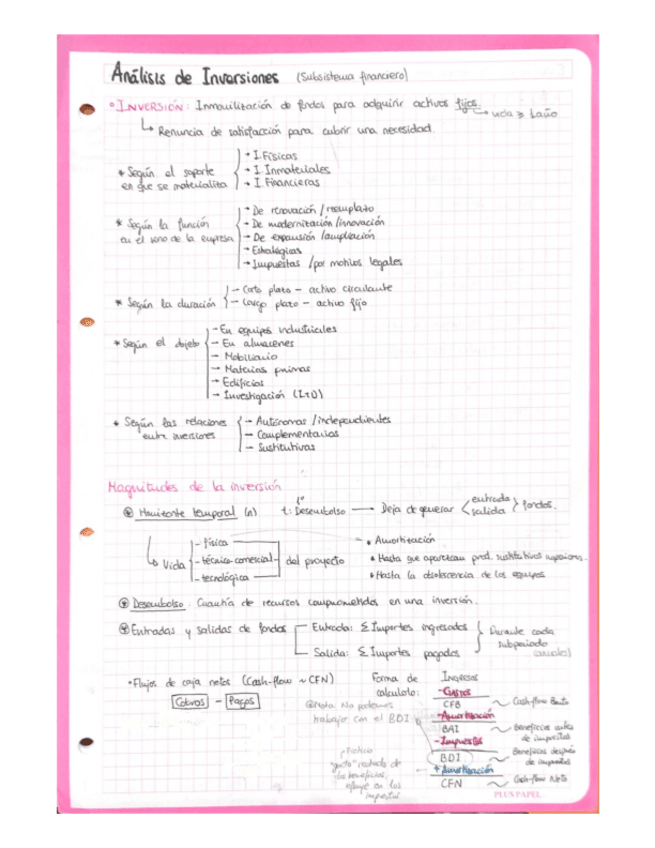 Análisis de Inversiones (Subsistema financiero)
° INVERSIÓN: Inmovilización de fondos para adquirir activos fijos. → vida ≥ 1 año
↳ Renuncia de satisfacción para cubrir una necesidad.
* Según el soporte en que se materializa
- I. Físicas
- I. Inmateriales
- I. Financieras
* Según la función en el seno de la empresa
- De renovación / reemplazo
- De modernización / innovación
- De expansión / ampliación
- Estratégicas
- Impuestas / por motivos legales
* Según la duración
- Corto plazo - activo circulante
- Largo plazo - activo fijo
* Según el objeto
- En equipos industriales
- En almacenes
- Mobiliario
- Materias primas
- Edificios
- Investigación (I+D)
* Según las relaciones entre inversiones
- Autónomas / independientes
- Complementarias
- Sustitutivas
Magnitudes de la inversión
Horizonte temporal (n) t: 1º Desembolso — Deja de generar entrada salida fondos.
↳ Vida
- física
- técnico-comercial
- tecnológica
del proyecto
* Amortización
* Hasta que aparezcan prod. sustitutivos superiores.
* Hasta la obsolescencia de los equipos
Desembolso: Cuantía de recursos comprometidos en una inversión.
Entradas y salidas de fondos
Entrada: Σ Importes ingresados
Salida: Σ Importes pagados
Durante cada subperiodo (anuales)
• Flujos de caja netos (Cash-flow ~ CFN)
Cobros - Pagos
Forma de calculo:
Ingresos
- Gastos
CFB ~ Cash-flow Bruto
- Amortización
BAI ~ Beneficios antes de impuestos
- Impuestos
BDI ~ Beneficios después de impuestos
+ Amortización
CFN ~ Cash-flow Neto
Nota: No podemos trabajar con el BDI
Ficticio
"gasto" restado de los beneficios,
influye en los impuestos
PLUS PAPEL